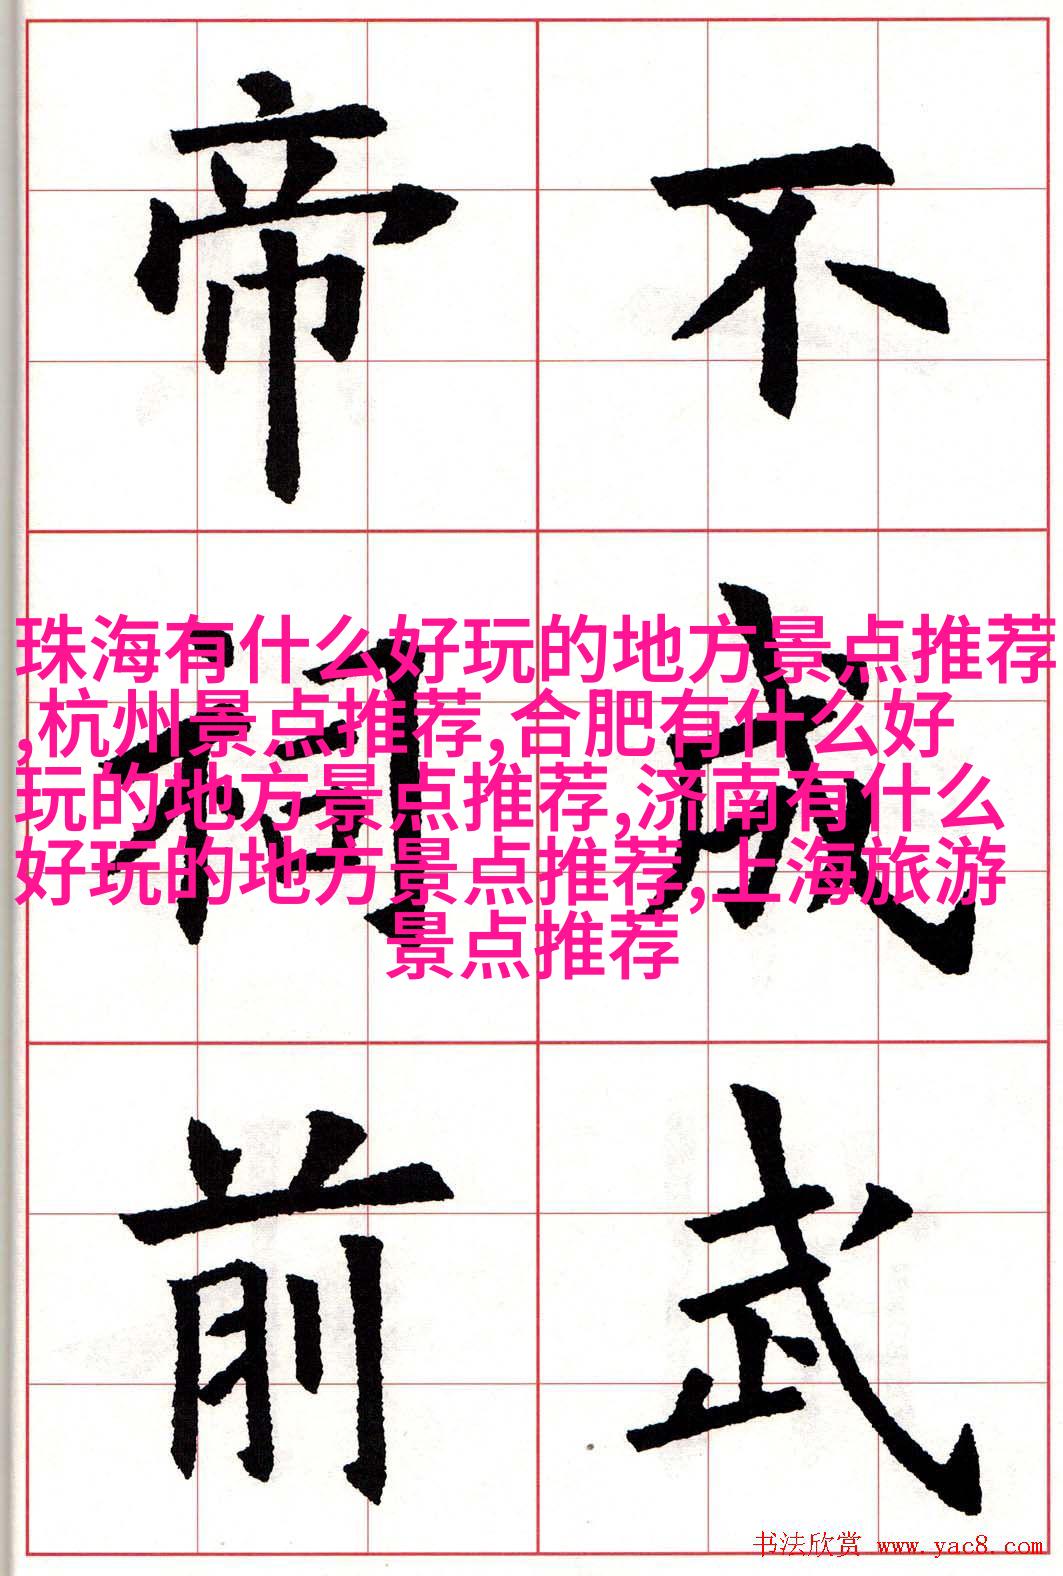 帝不
珠海有什么好玩的地方景点推荐
,杭州景点推荐,合肥有什么好
玩的地方景点推荐,济南有什么
好玩的地方景点推荐,上海旅游
景点推荐
相成
前武
书法欣赏 www.yac8.com